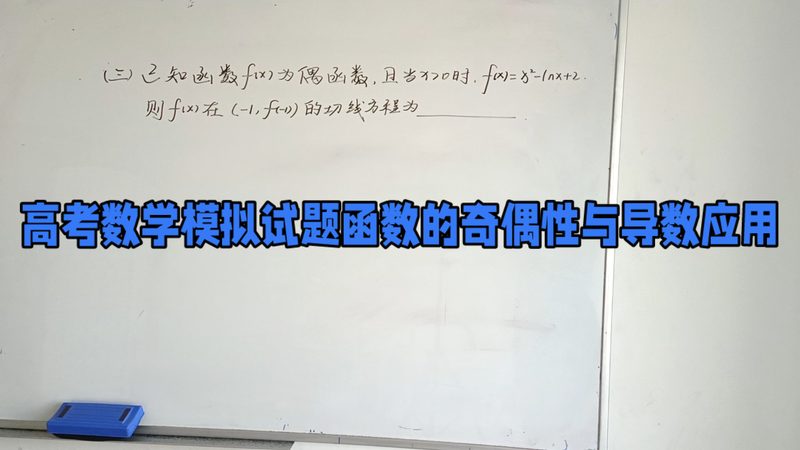 (三)已知函数f(x)为偶函数,且当x>0时,f(x)=x²-lnx+2.
则f(x)在(-1,f(-1))的切线方程为________.
高考数学模拟试题函数的奇偶性与导数应用